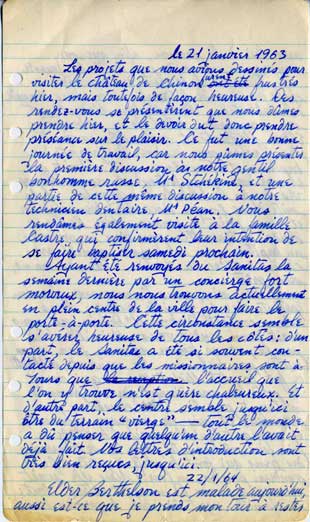 le 21 janvier 1963
Les projets que nous avions dessinés pour
visiter le château de Chinon furent frustrés
hier, mais toutefois de façon heureuse. Des
rendez-vous se présentèrent que nous dûmes
prendre hier, et le devoir dut donc prendre
préséance sur le plaisir. Ce fut une bonne
journée de travail, car nous pûmes présenter
la première discussion à notre gentil
bonhomme russe, Mr et une
partie de cette même discussion à notre
technicien dentaire, Mr Péan. Nous
rendâmes également visite à la famille
Castre, qui confirmèrent leur intention de
se faire baptiser samedi prochain.
Ayant été renvoyés du Sanitas la
semaine dernière par un concierge fort
morovux, nous nous trouvons actuellement
en plein centre de la ville pour faire le
porte-à-porte. Cette circonstance semble
s'avérer heureuse de tous les côtés: d'un
part, le Sanitas a été si souvent con-
tacté depuis que les missionnaires sont à
Tours que la réception l'accueil que
l'on y trouve n'est guère chaleureux. Et
d'autre part, le centre semble jusqu'ici
être du terrain "vierge" — tout le monde
a dû penser que quelqu'un d'autre l'avait
déjà fait. Nos lettres d'introduction sont
très bien reçues, jusqu'ici.
22/1/64
Elder Berthelson est malade aujourd'hui,
aussi est-ce que je prends mon tour à rester